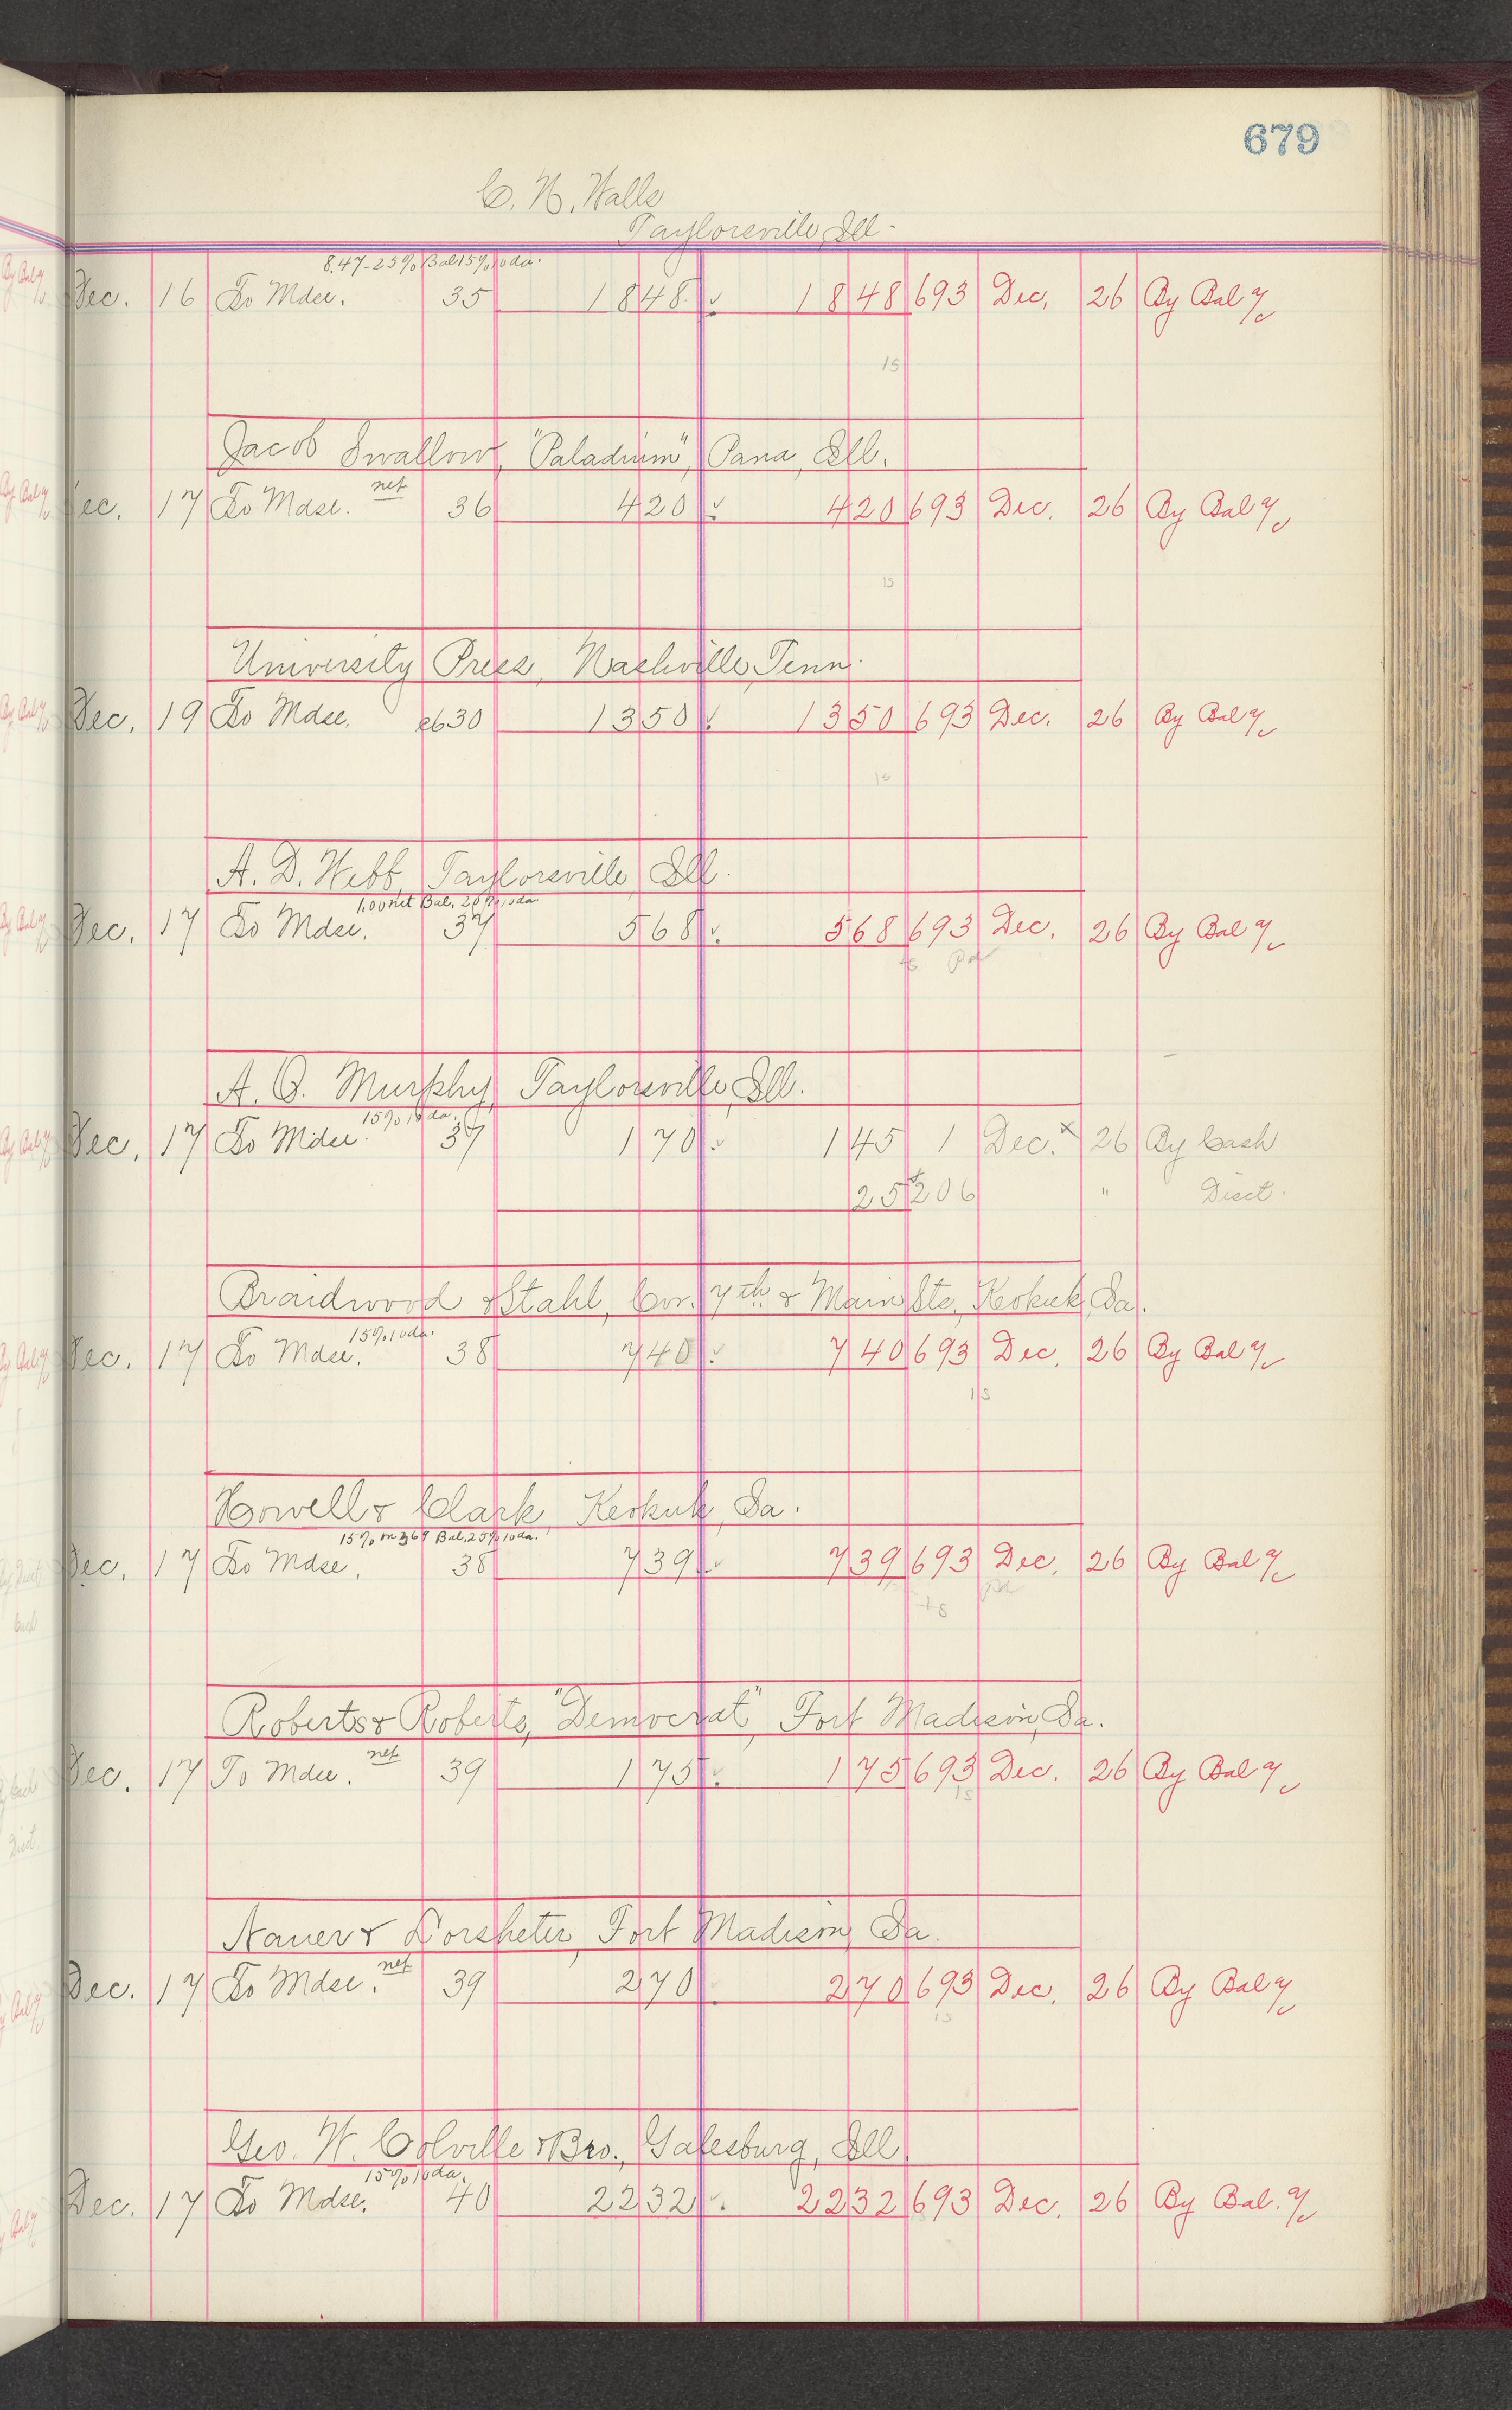 679
C. N. Walls
Taylorsville, Ill.
8.47-25% Bal 15% 10 da.
Dec. 16 To Mdse. 35 18 48 ✓ 18 48 693 Dec. 26 By Bal %
15
Jacob Swallow, "Paladium", Pana, Ill.
net
Dec. 17 To Mdse. 36 4 20 ✓ 4 20 693 Dec. 26 By Bal %
15
University Press, Nashville, Tenn.
Dec. 19 To Mdse. 630 13 50 ✓ 13 50 693 Dec. 26 By Bal %
15
A. D. Webb, Taylorsville, Ill.
1.00 net Bal. 20% 10 da.
Dec. 17 To Mdse. 37 5 68 ✓ 5 68 693 Dec. 26 By Bal %
Pd
A. Q. Murphy, Taylorsville, Ill.
15% 10 da.
Dec. 17 To Mdse. 37 1 70 ✓ 1 45 1 Dec. x 26 By Cash
25 206 " Disct.
Braidwood & Stahl, Cor. 7th & Main Sts, Keokuk, Ia.
15% 10 da.
Dec. 17 To Mdse. 38 7 40 ✓ 7 40 693 Dec. 26 By Bal %
15
Howell & Clark, Keokuk, Ia.
15% on 3.69 Bal. 25% 10 da.
Dec. 17 To Mdse. 38 7 39 ✓ 7 39 693 Dec. 26 By Bal %
15 pd
Roberts & Roberts, "Democrat", Fort Madison, Ia.
net
Dec. 17 To Mdse. 39 1 75 ✓ 1 75 693 Dec. 26 By Bal %
15
Nauer & Dorsheter, Fort Madison, Ia.
net
Dec. 17 To Mdse. 39 2 70 2 70 693 Dec. 26 By Bal %
15
Geo. W. Colville & Bro., Galesburg, Ill.
15% 10 da.
Dec. 17 To Mdse. 40 22 32 ✓ 22 32 693 Dec. 26 By Bal. %